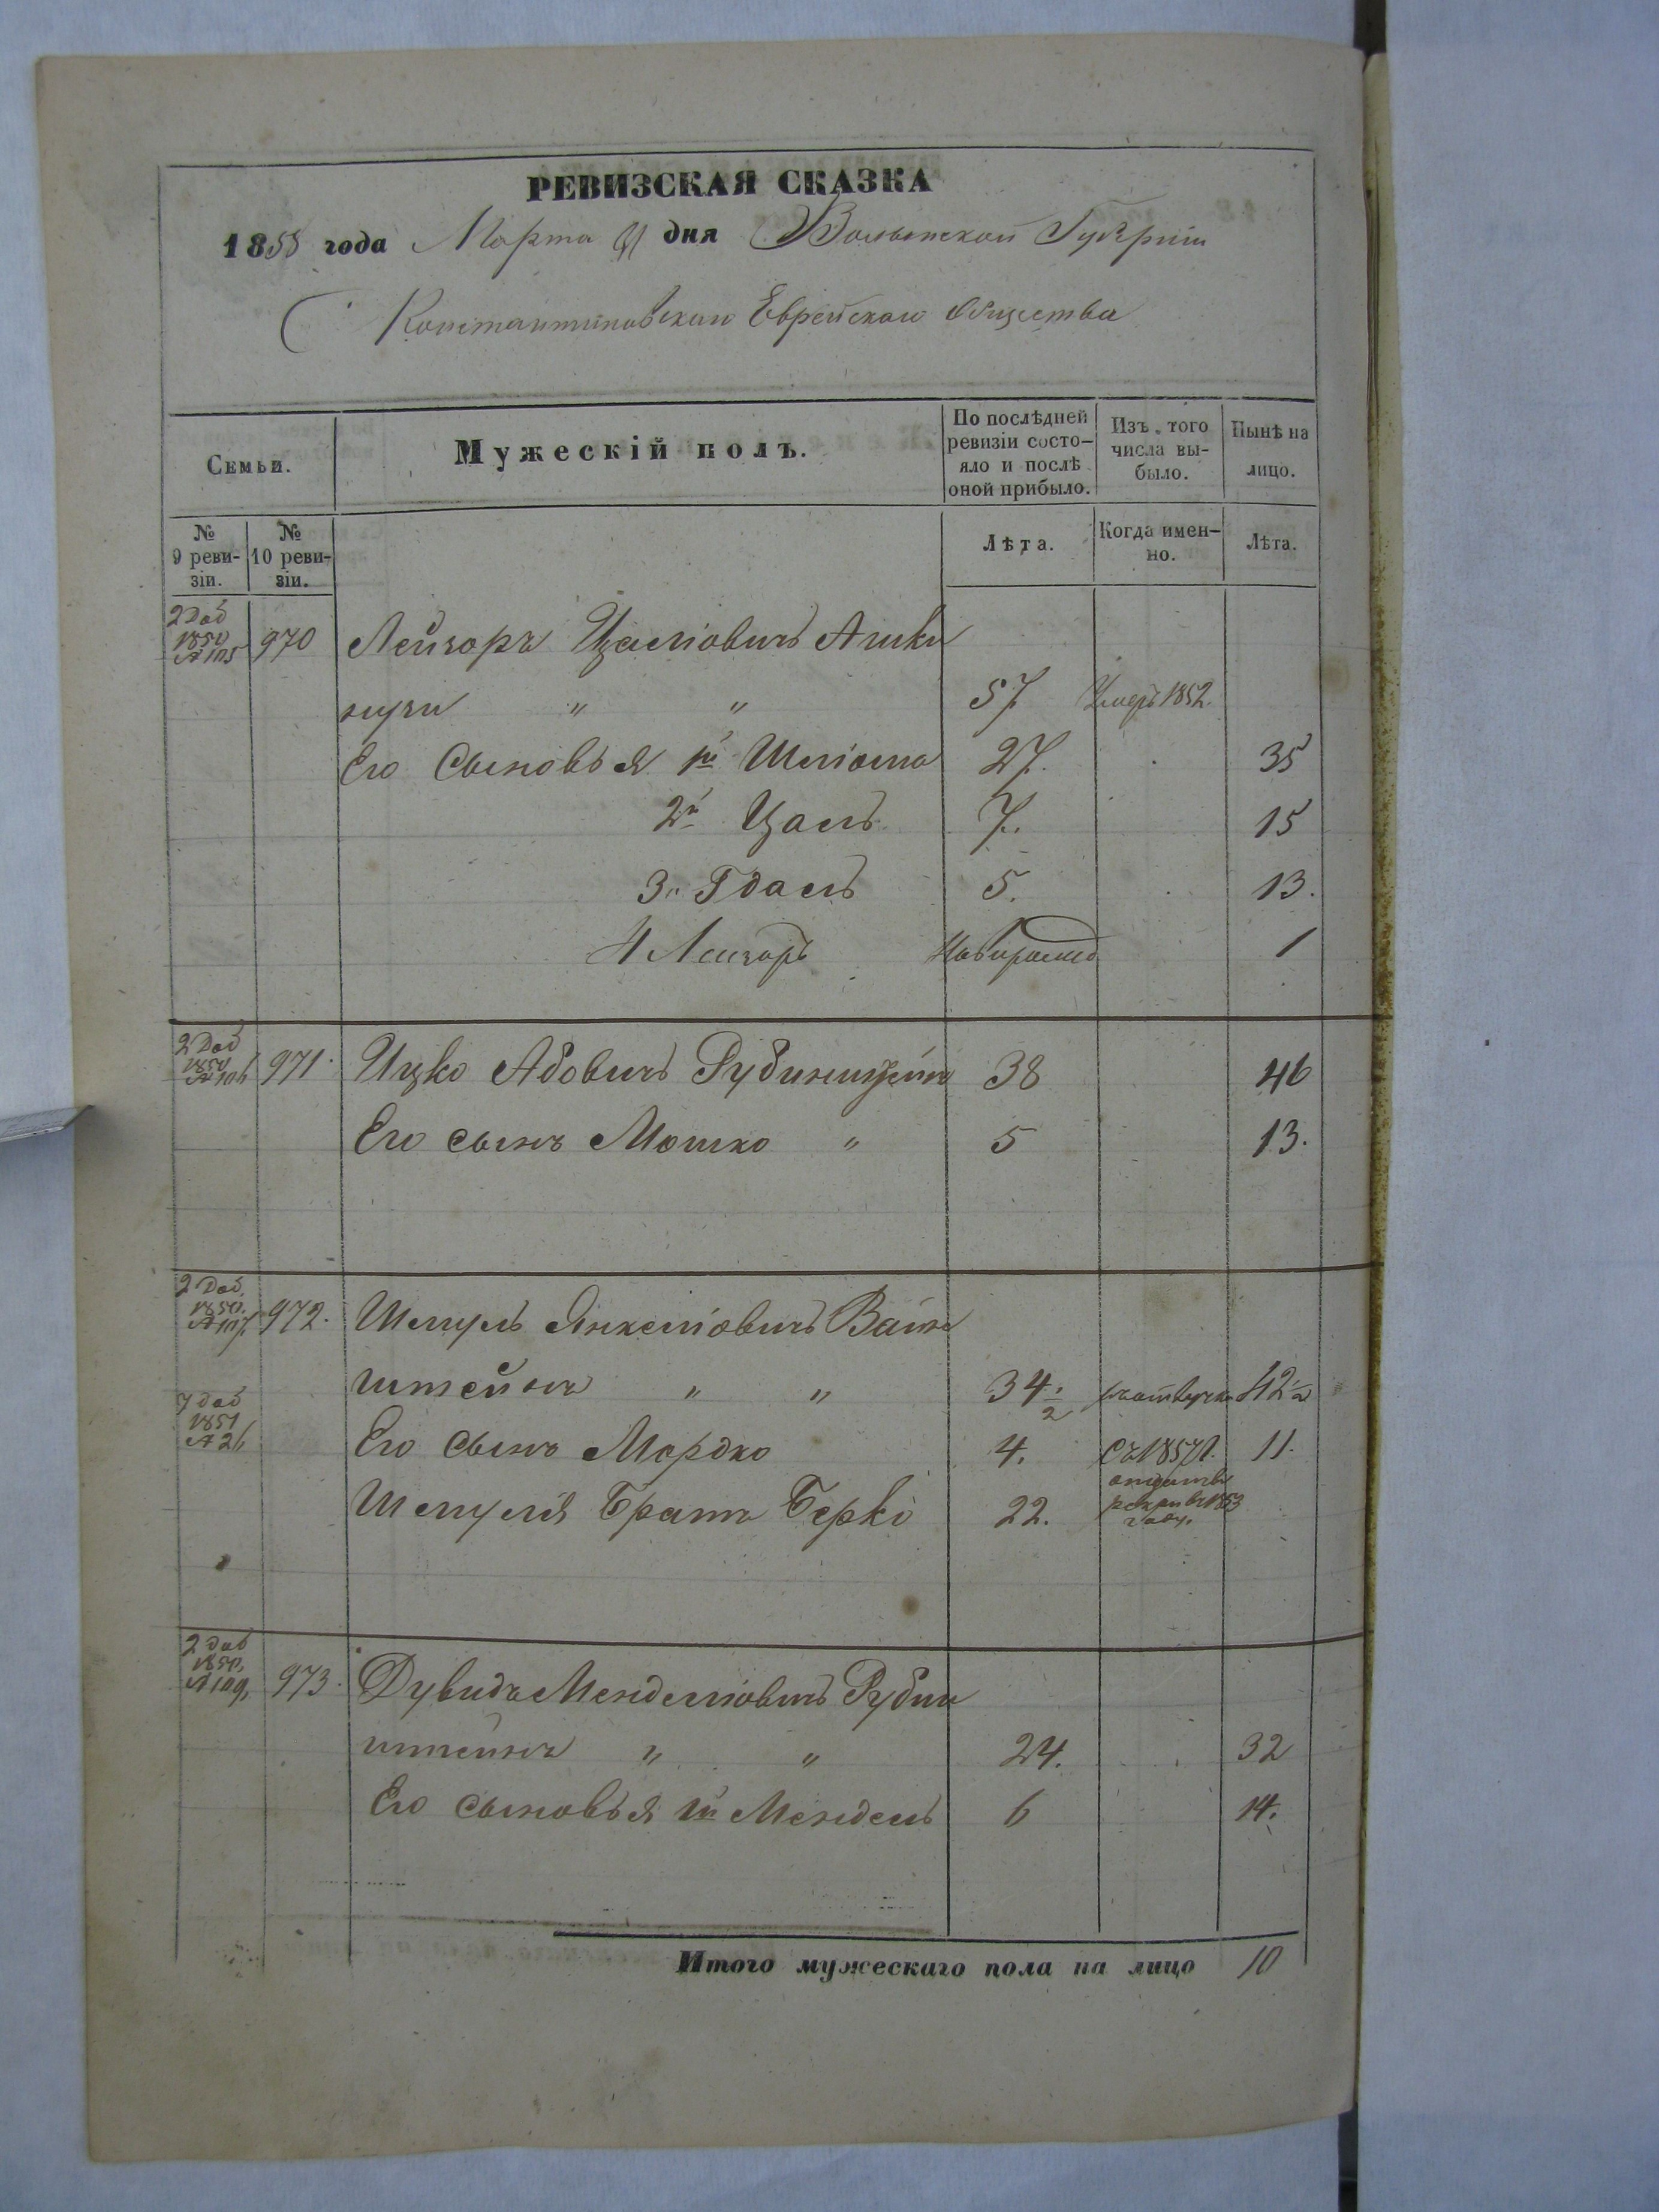 РЕВИЗСКАЯ СКАЗКА
1858 года Марта дня Волынской Губерніи
Константиновскаго Еврейскаго Общества
Семьи.
Мужескій полъ.
По послѣдней ревизіи состо-яло и послѣ оной прибыло.
Изъ того числа вы-было.
Нынѣ на лицо.
№ 9 реви-зіи.
№ 10 реви-зіи.
Лѣта.
Когда имен-но.
Лѣта.
2 Доб 1850 № 105 970 Лейзоръ Цалiовичъ Ашке
нузи " " 57 Умеръ 1852.
Его Сыновья 1й Шліома 27. 35
2й Цаль 7. 15
3й Гдаль 5. 13.
4 Лейзоръ 1
2 Доб 1850 № 106 971. Ицко Абовичъ Рубинштейнъ 38 46
Его сынъ Мошко " 5 13.
2 Доб. 1850. № 107. 972. Шмуль Янкеліовичъ Вайн
штейнъ " " 34 1/2 42 1/2
7 доб 1851 № 26 Его Сынъ Мордко 4. Съ 1851 11.
Шмуля Братъ Берко 22. отданъ въ рекруты 1853 году.
2 доб 1850, № 109, 973. Дувидъ Менделіовичъ Рубин
штейнъ " " 24. 32
Его сыновья 1й Мендель 6 14.
Итого мужескаго пола на лицо 10